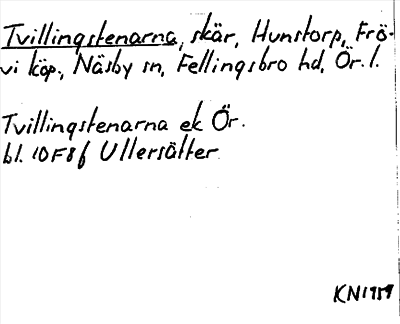 Tvillingstenarna, skär, Hunstorp, Frö-
vi köp., Näsby sn, Fellingsbro hd, Ör. l.
Tvillingstenarna ek Ör.
bl. 10F8f Ullersätter
KN1959